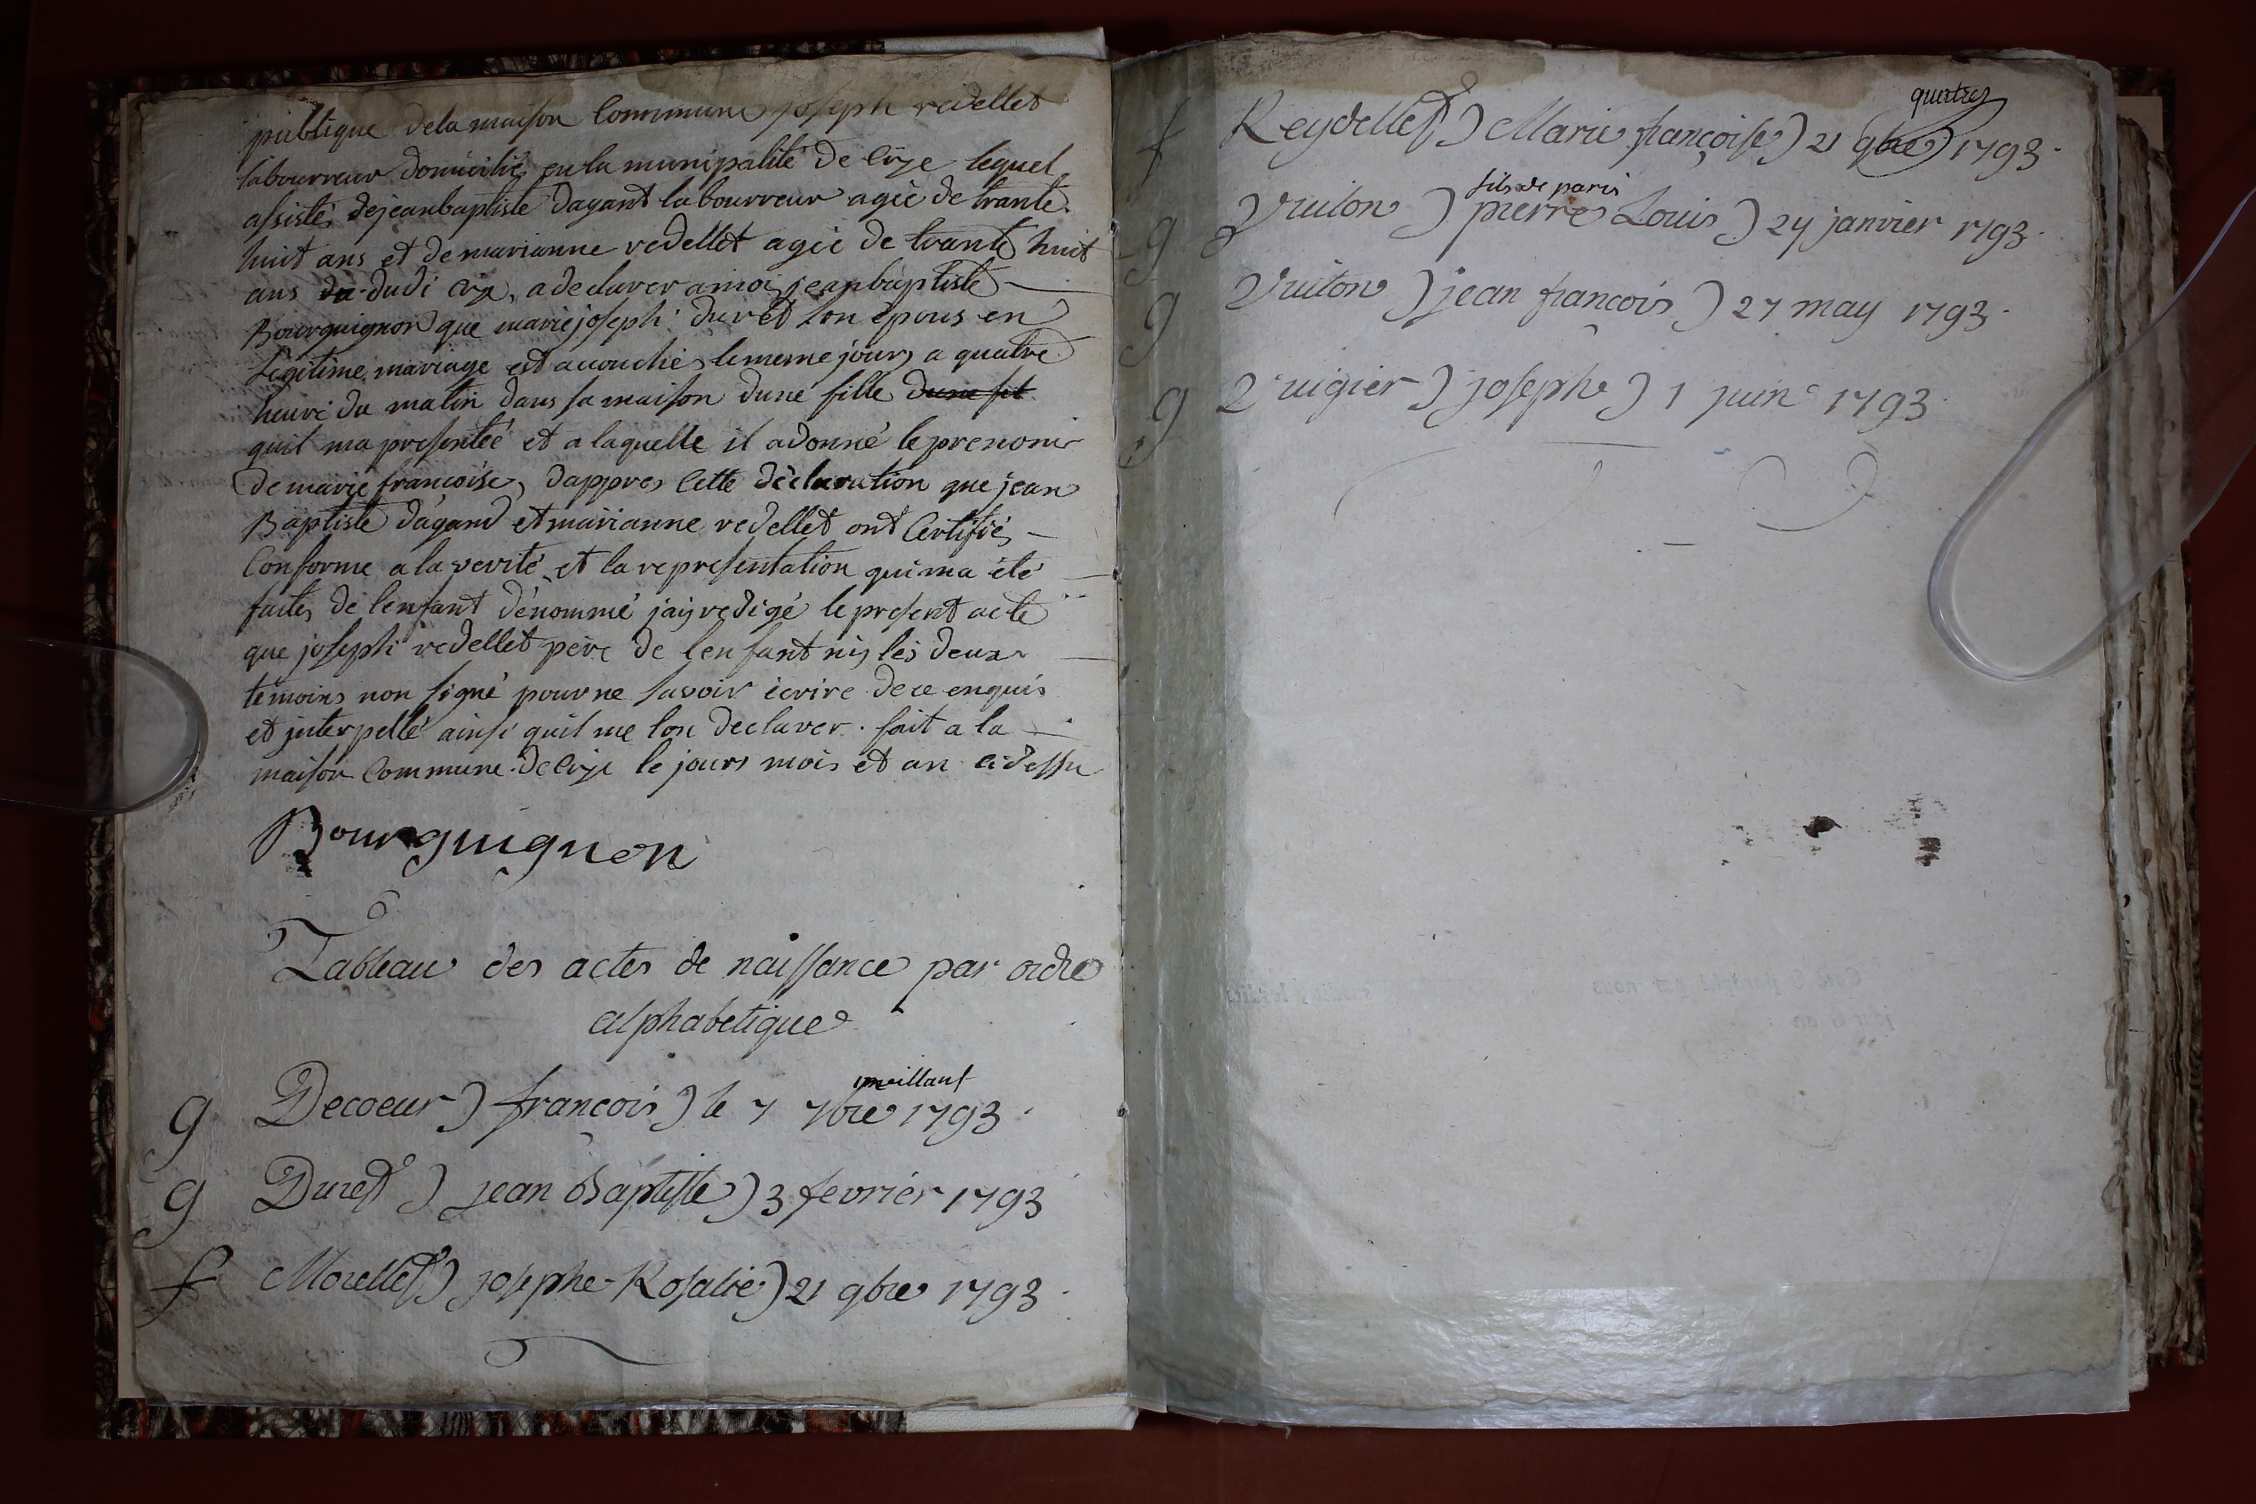 publique dela maison Commune joseph redellet
labourreur domicilié en la munipalité de Cize lequel
assistés dejeanbaptiste dagant labourreur agée de trante
huit ans et de marianne redellet agée de trante huit
ans du dudi Cize, a declarer a moi jeanbaptiste
Bourguignon que marie joseph duret son épous en
légitime mariage est acouchés lememe jours a quatre
heure du matin dans sa maison dune fille dune fil
quil ma presentée et a laquelle il adonné leprenom
de marie françoise, dappres Cette déclaration que jean
Baptiste dagand et marianne redellet ont Certifiés
Conforme a la verité et la representation quima été
faites de l'enfant dénommé jaij redigé lepresent acte
que joseph redellet père de lenfant nij les deux
témoins non signé pour ne savoir écrire de ce enquis
et jnterpellé ainsi quil me lon declarer. fait a la
maison Commune de Cize le jours mois et an cidessu
Bourguignon
Tableau des actes de naissance par ordre
alphabetique
meillant
g Decoeur) françois) le 7 7bre 1793.
g Duret) jean Baptiste) 3 fevrier 1793
f Morellet) josephe-Rosalie) 21 9bre 1793.
f Reydellet) Marie françoise) 21 9bre 1793.
fils de paris
g Vuiton) pierre Louis) 24 janvier 1793.
g Vuiton) jean francois) 27 may 1793.
g Vuigier) josephe) 1 juin 1793.